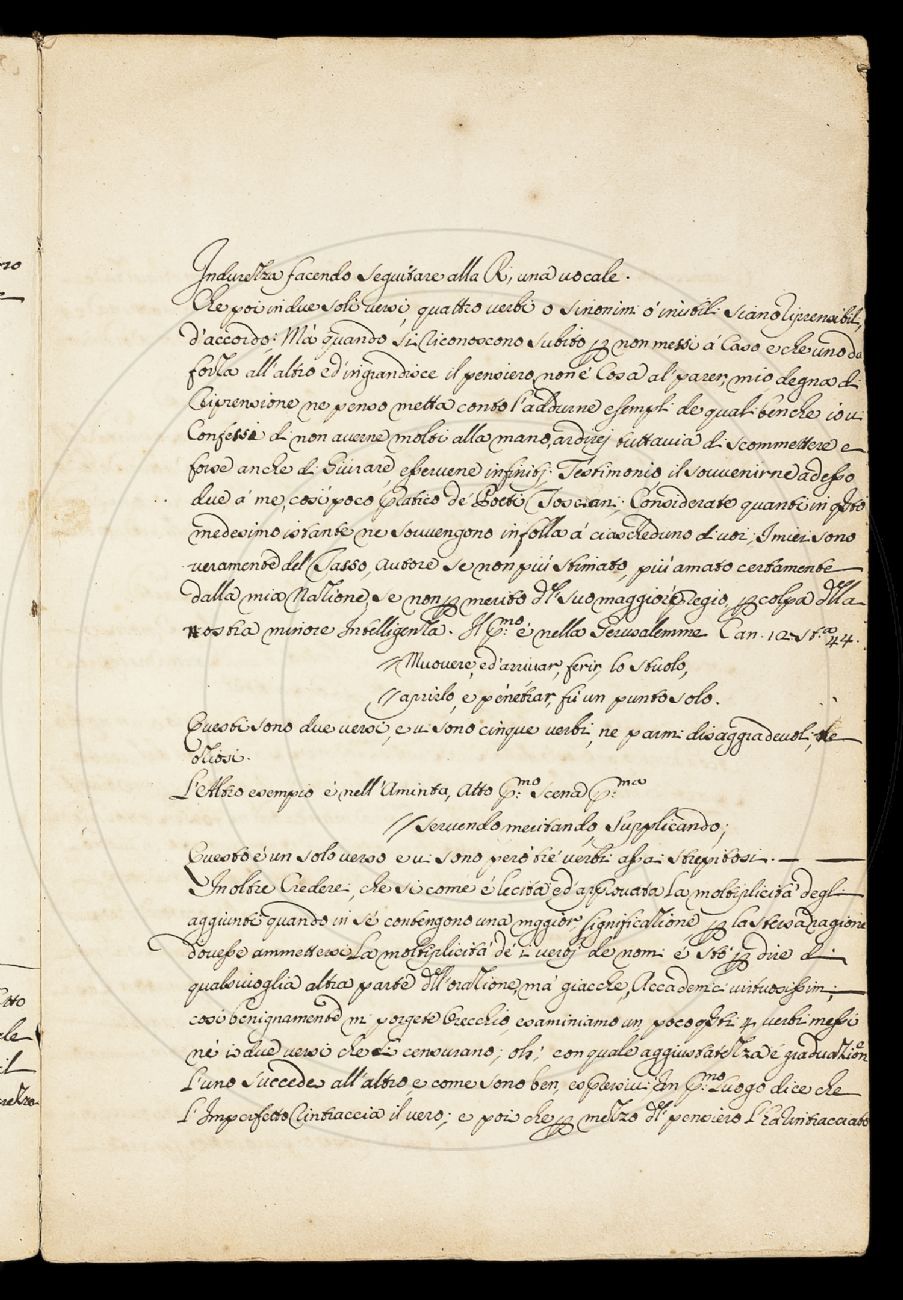 Indurezza facendo seguitare alla R, una uocale.
Che poi in due soli uersi, quattro uerbi o sinonimi ó inutili siano riprensibili,
d'accordo; Má quando si riconoscono subito ꝑ non messi á Caso e che uno dà
forza all'altro ed ingrandisce il pensiero, non é Cosa al parer mio degna di
Riprensione ne penso metta conto l'addurne esempli de quali benche io ui
Confessi di non auerne molti alla mano, ardirej tuttauia di scommettere e
forse anche di Giurare, esseruene infinitj; Testimonio il souuenirne adesso
due á me, cosí poco Pratico de Poeti Toscani; Considerate quanti in qsto
medesimo istante ne souuengono in folla á ciascheduno di uoi; I miei sono
ueramente del Tasso, autore se non più stimato, più amato certamente
dalla mia Nazione, se non ꝑ merito dl suo maggiore Pregio, ꝑ colpa dlla
nostra minore Intelligenza. Il Pmo é nella Gerusalemme Can. 12 Sta 44.
// Muouere, ed arriuar, ferir lo stuolo,
// aprirlo, e penetrar, fú un punto solo.
Questi sono due uersi, e ui sono cinque uerbi, ne parmi disaggradeuoli, ne
oziosi.
L'Altro esempio é nell'Aminta, Atto Pmo Scena Pma
// Seruendo, meritando, Supplicando;
Questo é un solo uerso e ui sono peró tré uerbi assai strepitosi.
Inoltre Crederei, che si come é lecita ed approuata La moltiplicità degli
aggiunti quando in sé contengono una mggior significazione, ꝑ la stessa ragione
douesse ammettersi La moltiplicità de i uerbj de nomi é stó ꝑ dire di
qualsiuoglia altra parte dll'orazione, má giacche, Accademici uirtuosissimi,
così benignamente mi porgete Orecchio esaminiamo un poco qsti 4 uerbi messi
né i due uersi che si censurano; oh; con quale aggiustatezza é graduazione
L'uno succede all'altro, e come sono ben espressiui: In Pmo Luogo dice che
L'Imperfetto Rintraccia il uero; e poi che ꝑ mezzo dl pensiero L'há rintracciato